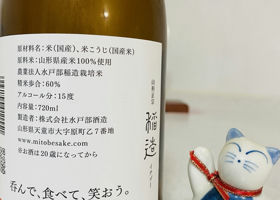 原材料名：米(国産)、米こうじ(国産米)
原料米：山形県産米100%使用
農業法人水戸部稲造栽培米
精米歩合：60%
アルコール分：15度
内容量：720ml
製造者：株式会社水戸部酒造
山形県天童市大字原町乙７番地
www.mitobesake.com
※お酒は20歳になってから
呑んで、食べて、笑おう。
山形正宗
稲造